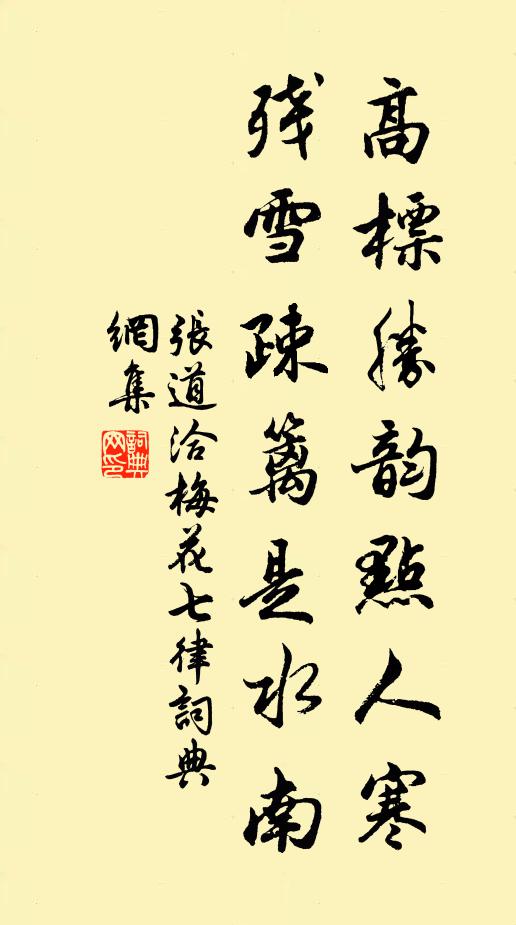 高標勝韵點人寒
残雪疎篱是水南
張道洽梅花七律詞典
網集
詞典
网印